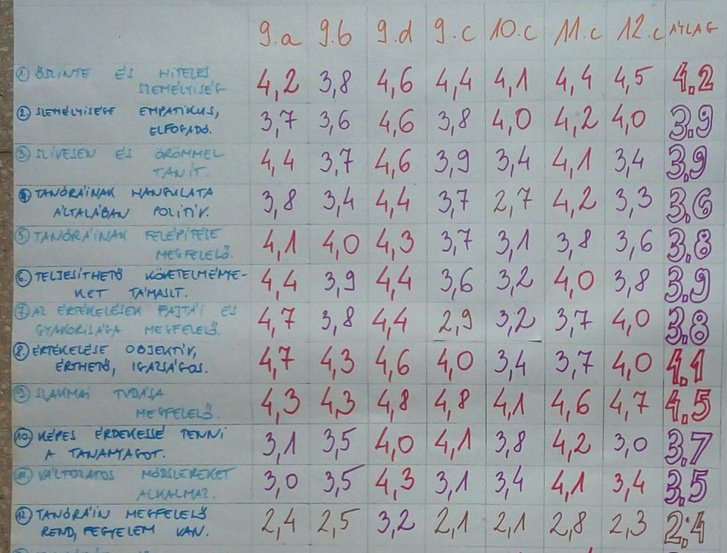 9.a 9.b 9.d 9.c 10.c 11.c 12.c ÁTLAG
1. ŐSZINTE ÉS HITELES 4,2 3,8 4,6 4,4 4,1 4,4 4,5 4.2
SZEMÉLYISÉG
2. SZEMÉLYISÉGE EMPATIKUS, 3,7 3,6 4,6 3,8 4,0 4,2 4,0 3.9
ELFOGADÓ.
3. SZÍVESEN ÉS ÖRÖMMEL 4,4 3,7 4,6 3,9 3,4 4,1 3,4 3.9
TANÍT.
4. TANÓRÁINAK HANGULATA 3,8 3,4 4,4 3,7 2,7 4,2 3,3 3.6
ÁLTALÁBAN POZITÍV.
5. TANÓRÁINAK FELÉPÍTÉSE 4,1 4,0 4,3 3,7 3,1 3,8 3,6 3.8
MEGFELELŐ.
6. TELJESÍTHETŐ KÖVETELMÉNYE- 4,4 3,9 4,4 3,6 3,2 4,0 3,8 3.9
KET TÁMASZT.
7. AZ ÉRTÉKELÉSEK FAJTÁI ÉS 4,7 3,8 4,4 2,9 3,2 3,7 4,0 3.8
GYAKORISÁGA MEGFELELŐ.
8. ÉRTÉKELÉSE OBJEKTÍV, 4,7 4,3 4,6 4,0 3,4 3,7 4,0 4.1
ÉRTHETŐ, IGAZSÁGOS.
9. SZAKMAI TUDÁSA 4,3 4,3 4,8 4,8 4,1 4,6 4,7 4.5
MEGFELELŐ.
10. KÉPES ÉRDEKESSÉ TENNI 3,1 3,5 4,0 4,1 3,8 4,2 3,0 3,7
A TANANYAGOT.
11. VÁLTOZATOS MÓDSZEREKET 3,0 3,5 4,3 3,1 3,4 4,1 3,4 3.5
ALKALMAZ.
12. TANÓRÁIN MEGFELELŐ 2,4 2,5 3,2 2,1 2,1 2,8 2,3 2.4
REND, FEGYELEM VAN.